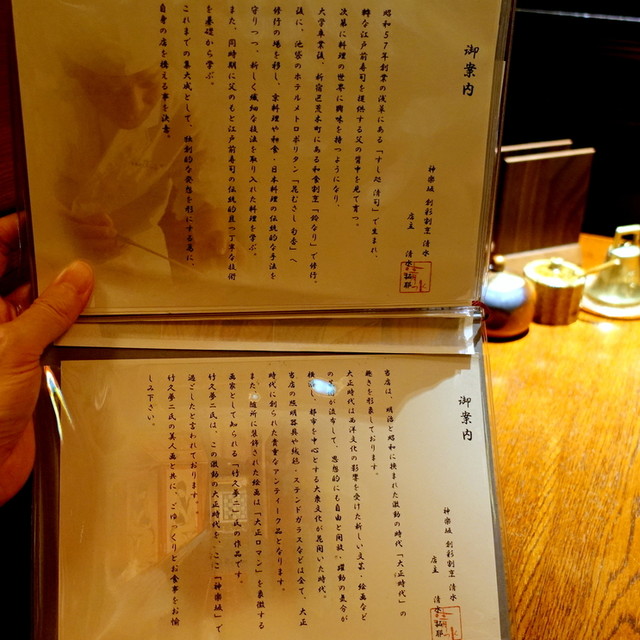 御案内
昭和57年創業の浅草にある「すし処 清司」で生まれ、
粋な江戸前寿司を提供する父の背中を見て育つ。
次第に料理の世界に興味を持つようになり、
大学卒業後、新宿荒木町にある和食割烹「鈴なり」で修行。
後に、池袋のホテルメトロポリタン「花むさし旬香」へ
修行の場を移し、京料理や和食・日本料理の伝統的な手法を
守りつつ、新しく繊細な技法を取り入れた料理を学ぶ。
また、同時期に父のもと江戸前寿司の伝統的且つ丁寧な技術
を基礎から学ぶ。
これまでの集大成として、独創的な発想を形にする為に、
自身の店を構える事を決意。
神楽坂 創彩割烹 清水
店主 清水
御案内
当店は、明治と昭和に挟まれた激動の時代「大正時代」の
趣きを形象しております。
大正時代は西洋文化の影響を受けた新しい文芸・絵画など
が流布して、思想的にも自由と開放・躍動の気分が
横溢し、都市を中心とする大衆文化が花開いた時代。
当店の照明器具や絨毯・ステンドガラスなどは全て、大正
時代に作られた貴重なアンティーク品となります。
また、随所に装飾された絵画は「大正ロマン」を象徴する
画家として知られる「竹久夢二」の作品です。
竹久夢二氏は、この激動の大正時代を、ここ「神楽坂」で
過ごしたと言われております。
竹久夢二氏の美人画と共に、ごゆっくりとお食事をお愉
しみ下さい。
神楽坂 創彩割烹 清水
店主 清水